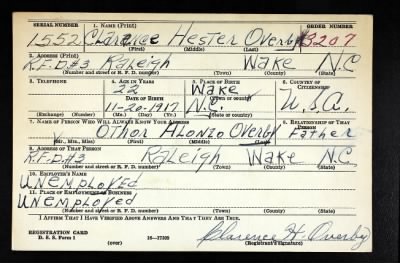 SERIAL NUMBER 1. NAME (Print) ORDER NUMBER
1552 Clarence Hester Overby 3207
(First) (Middle) (Last)
2. ADDRESS (Print)
R.F.D#3 Raleigh Wake N.C
(Number and street or R. F. D. number) (Town) (County) (State)
3. TELEPHONE 4. AGE IN YEARS 5. PLACE OF BIRTH 6. COUNTRY OF CITIZENSHIP
22 Wake U.S.A.
DATE OF BIRTH (Town or county)
11-20-1917 N.C.
(Exchange) (Number) (Mo.) (Day) (Yr.) (State or country)
7. NAME OF PERSON WHO WILL ALWAYS KNOW YOUR ADDRESS 8. RELATIONSHIP OF THAT PERSON
Othor Alonzo Overby Father
(Mr., Mrs., Miss) (First) (Middle) (Last)
9. ADDRESS OF THAT PERSON
R.F.D#3 Raleigh Wake N.C
(Number and street or R. F. D. number) (Town) (County) (State)
10. EMPLOYER'S NAME
Unemployed
11. PLACE OF EMPLOYMENT OR BUSINESS
Unemployed
(Number and street or R. F. D. number) (Town) (County) (State)
I AFFIRM THAT I HAVE VERIFIED ABOVE ANSWERS AND THAT THEY ARE TRUE.
REGISTRATION CARD
D. S. S. Form 1 (over) 16-17105 Clarence H. Overby
(Registrant's signature)